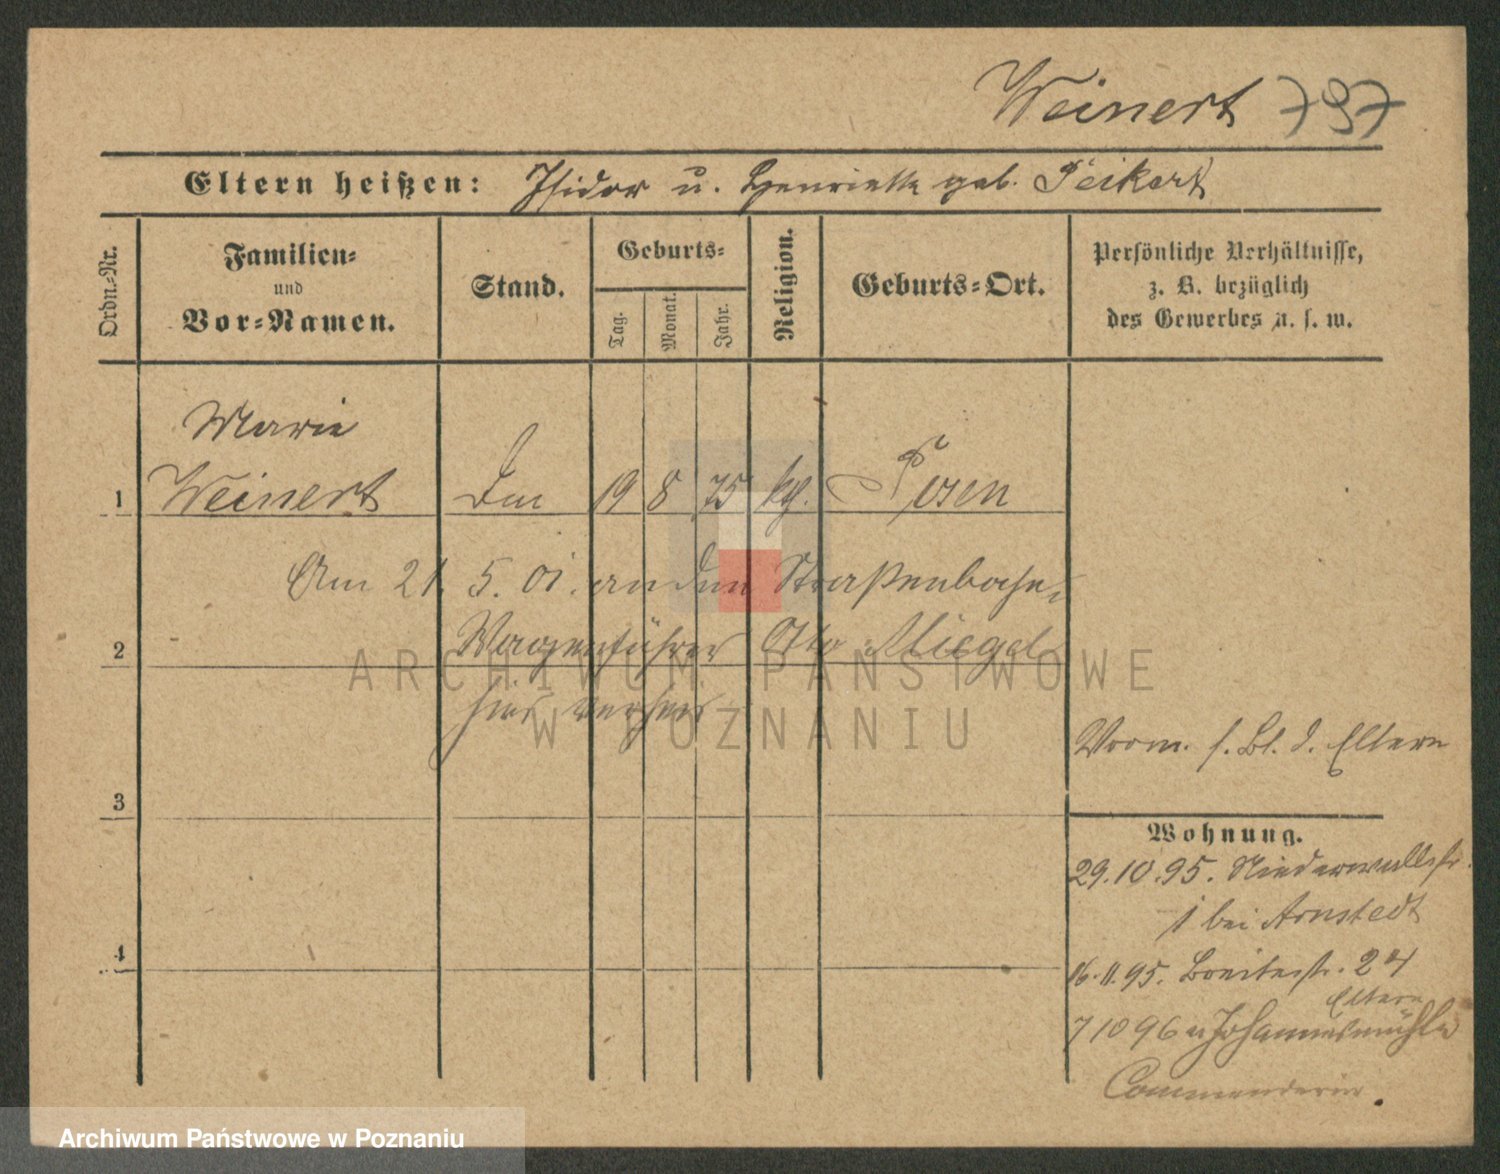 Weinert 797
Eltern heißen: Isidor u. Henriette geb. Peikert
Ordn.-Nr.
Familien-
und
Vor-Namen.
Stand.
Geburts-
Tag.
Monat.
Jahr.
Religion.
Geburts-Ort.
Persönliche Verhältnisse,
z. B. bezüglich
des Gewerbes u. s. w.
Marie
1 Weinert 19 8 75 kth. Posen
Am 21. 5. 01. an den Straßenbahn-
2 Wagenführer Otto Miegel
hier verheir.
ARCHIWUM PAŃSTWOWE
W POZNANIU
Vorm. s. Bl. d. Eltern
3
Wohnung.
29.10.95. Niederwallstr.
1 bei Arnstedt
4
16.11.95. Breitestr. 24
Eltern
7 10 96 n Johannesmühle
Commenderie.
Archiwum Państwowe w Poznaniu